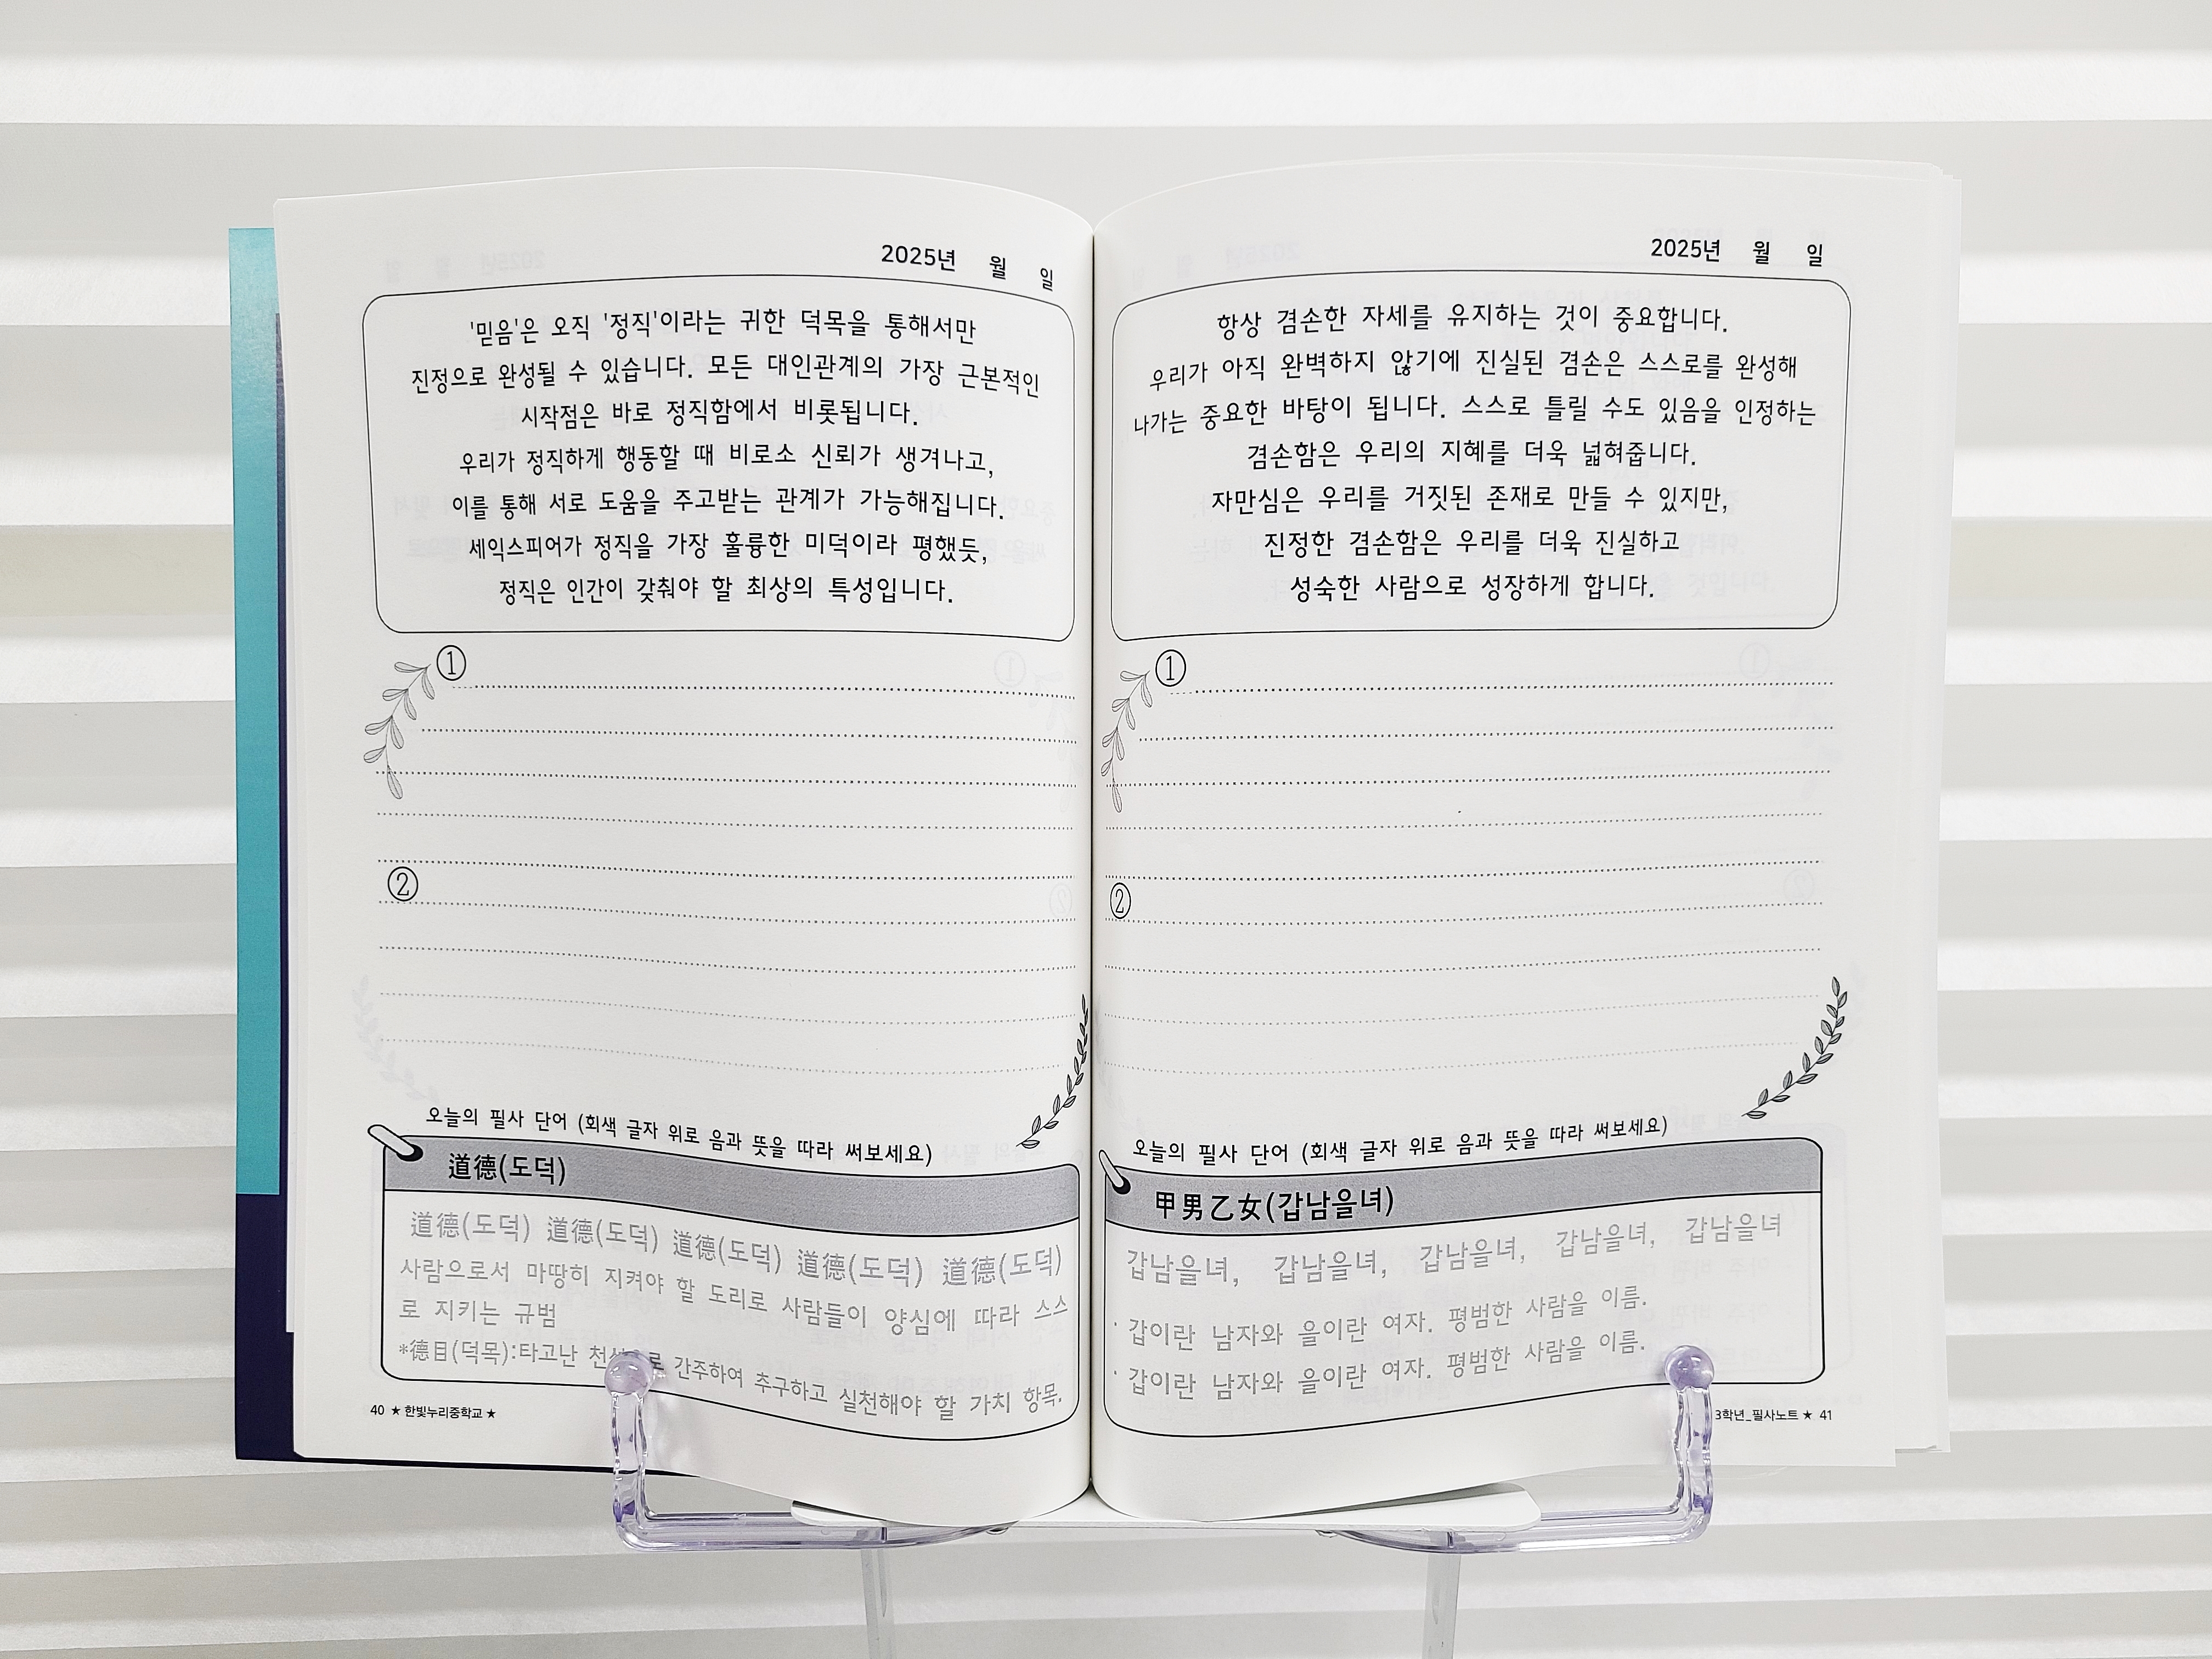 2025년 월 일
'믿음'은 오직 '정직'이라는 귀한 덕목을 통해서만
진정으로 완성될 수 있습니다. 모든 대인관계의 가장 근본적인
시작점은 바로 정직함에서 비롯됩니다.
우리가 정직하게 행동할 때 비로소 신뢰가 생겨나고,
이를 통해 서로 도움을 주고받는 관계가 가능해집니다.
세익스피어가 정직을 가장 훌륭한 미덕이라 평했듯,
정직은 인간이 갖춰야 할 최상의 특성입니다.
①
②
오늘의 필사 단어 (회색 글자 위로 음과 뜻을 따라 써보세요)
道德(도덕)
道德(도덕) 道德(도덕) 道德(도덕) 道德(도덕) 道德(도덕)
사람으로서 마땅히 지켜야 할 도리로 사람들이 양심에 따라 스스
로 지키는 규범
*德目(덕목):타고난 간주하여 추구하고 실천해야 할 가치 항목.
40 ★ 한빛누리중학교 ★
2025년 월 일
항상 겸손한 자세를 유지하는 것이 중요합니다.
우리가 아직 완벽하지 않기에 진실된 겸손은 스스로를 완성해
나가는 중요한 바탕이 됩니다. 스스로 틀릴 수도 있음을 인정하는
겸손함은 우리의 지혜를 더욱 넓혀줍니다.
자만심은 우리를 거짓된 존재로 만들 수 있지만,
진정한 겸손함은 우리를 더욱 진실하고
성숙한 사람으로 성장하게 합니다.
①
②
오늘의 필사 단어 (회색 글자 위로 음과 뜻을 따라 써보세요)
甲男乙女(갑남을녀)
갑남을녀, 갑남을녀, 갑남을녀, 갑남을녀, 갑남을녀
· 갑이란 남자와 을이란 여자. 평범한 사람을 이름.
· 갑이란 남자와 을이란 여자. 평범한 사람을 이름.
3학년_필사노트 ★ 41